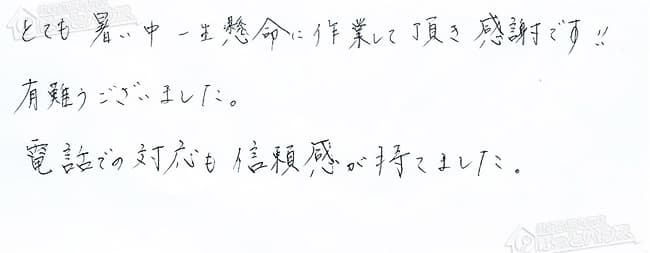 とても暑い中一生懸命に作業して頂き感謝です!!
有難うございました。
電話での対応も信頼感が持てました。